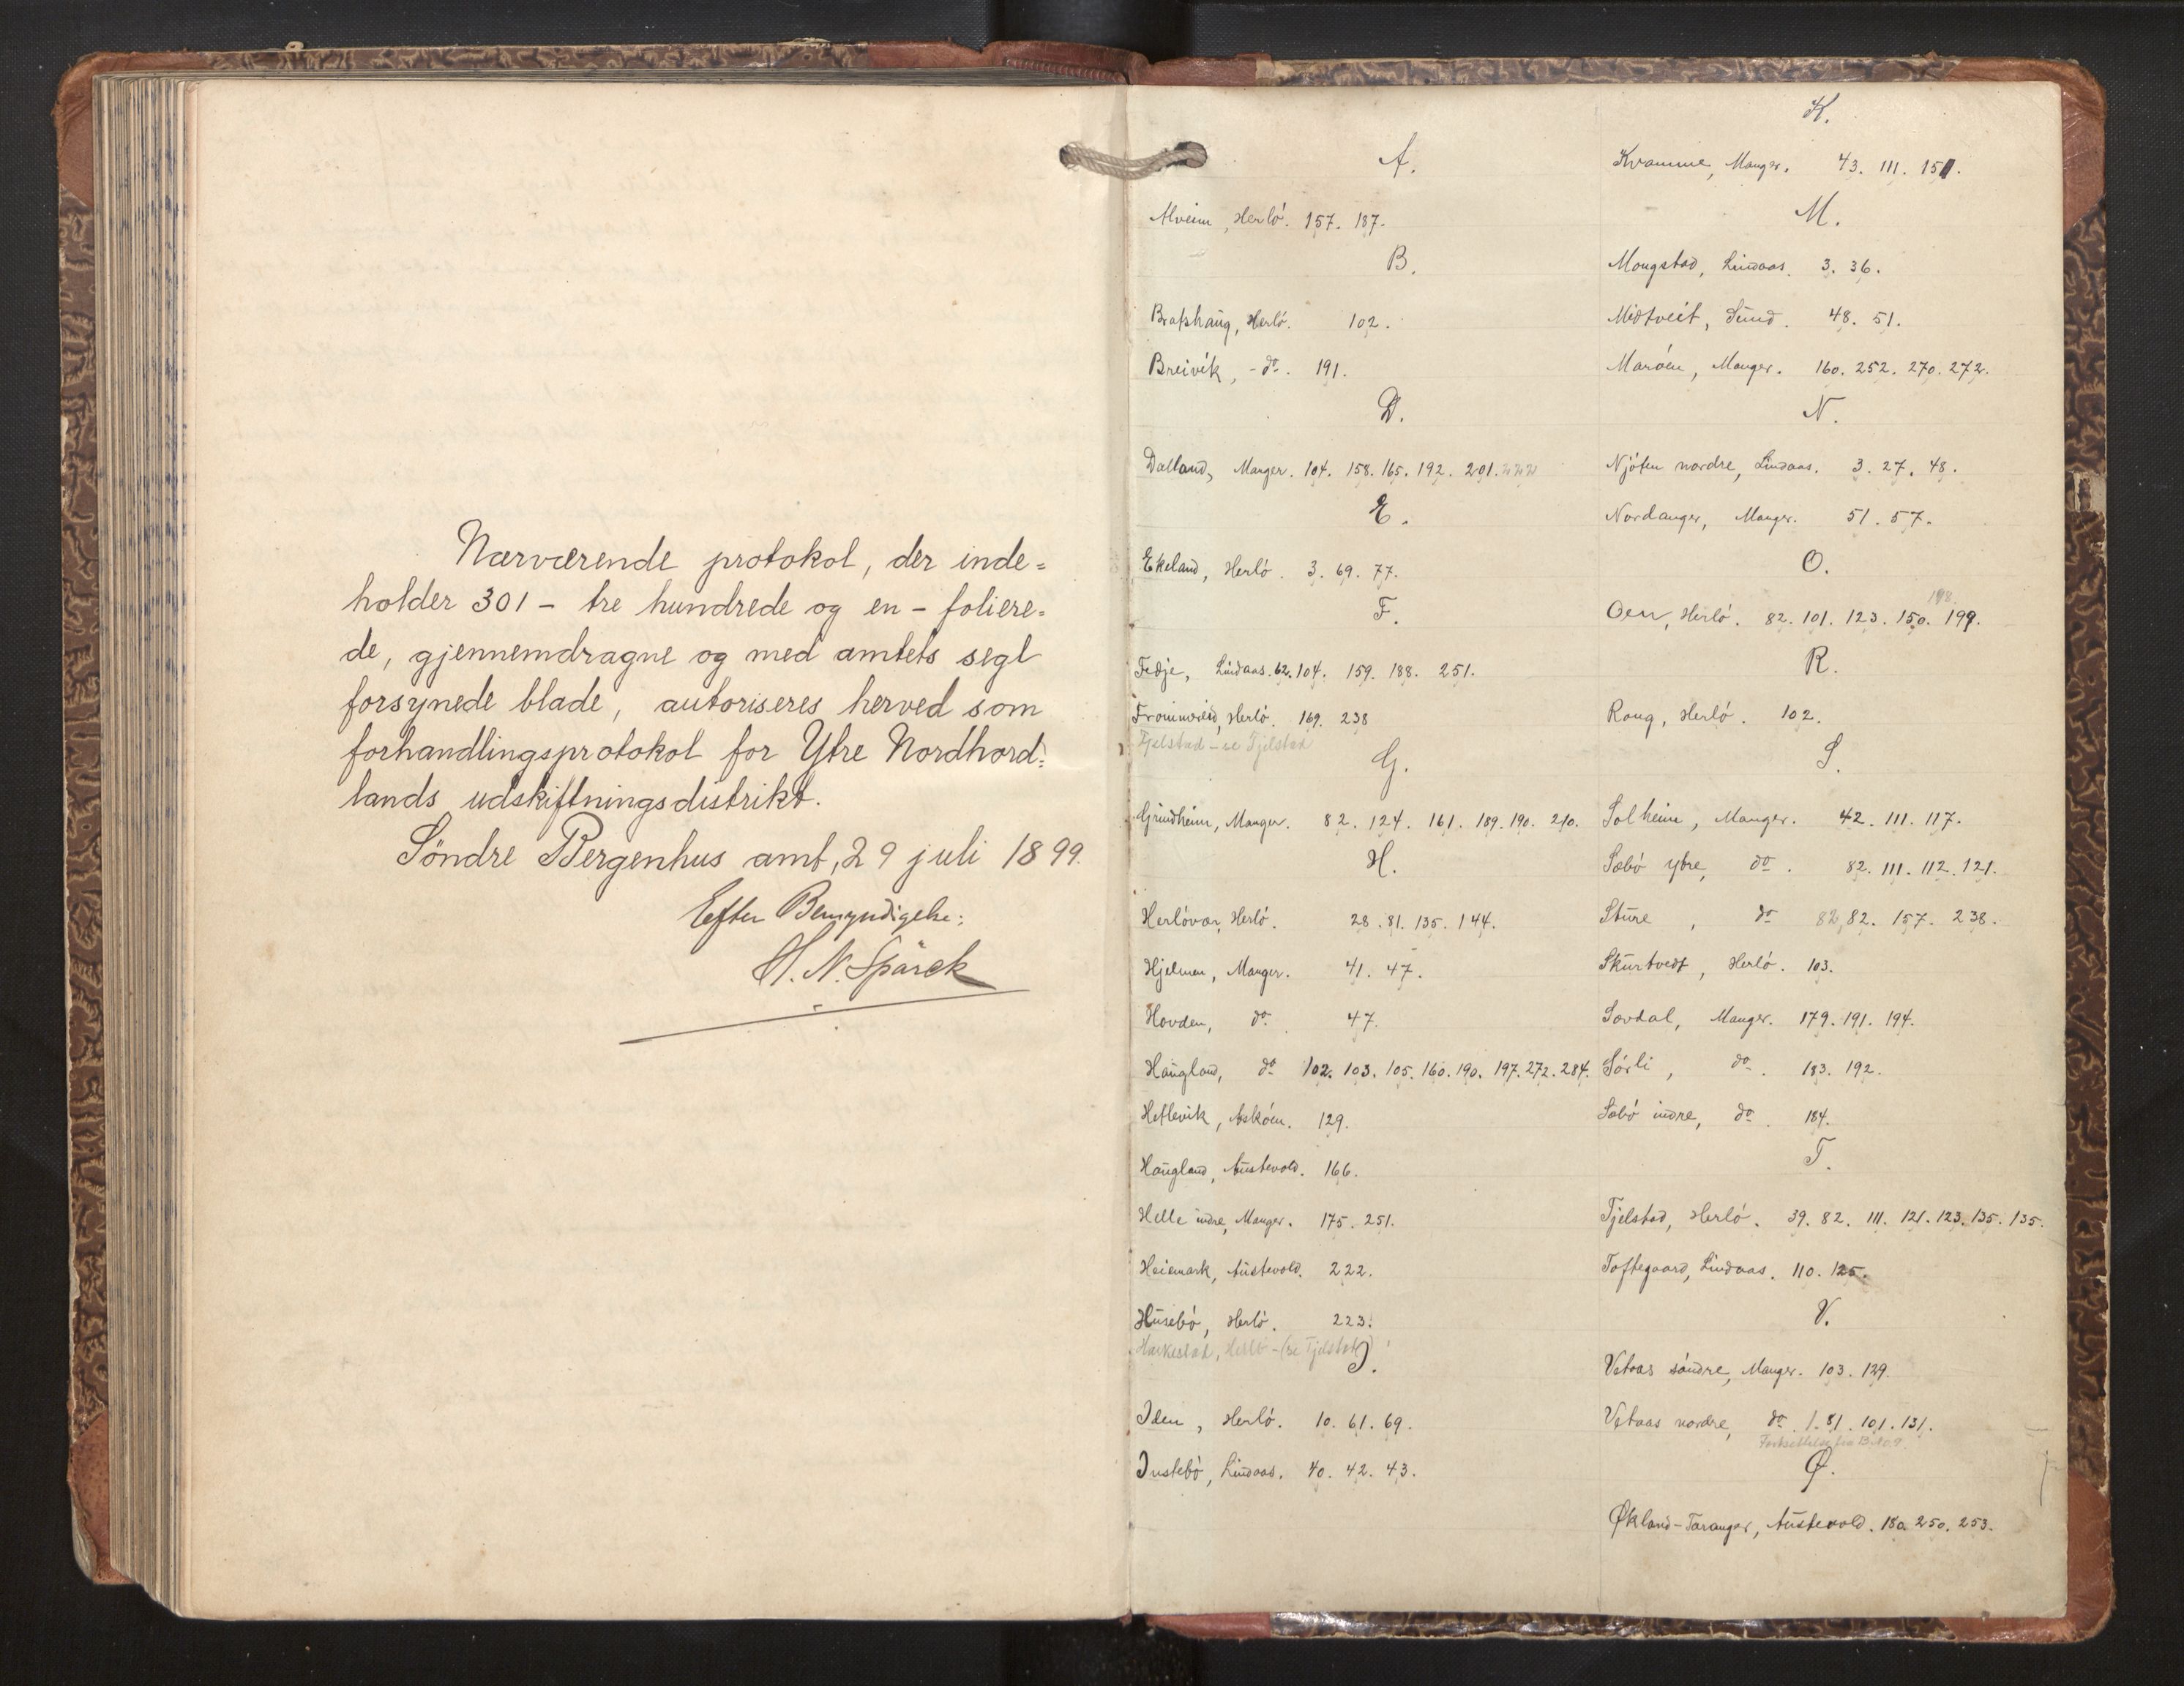 Nærværende protokol, der inde=
holder 301 – tre hundrede og en – foliere=
de, gjennemdragne og med amtets segl
forsynede blade, autoriseres herved som
forhandlingsprotokol for Ytre Nordhord=
lands udskiftningsdistrikt.
Söndre Bergenhus amt, 29 juli 1899.
Efter Bemyndigelse:
H. N. Spärck
A.
Alveim, Herlö. 157. 187.
B.
Bratshaug, Herlö. 102.
Breivik, - do. 191.
D.
Dalland, Manger. 104. 158. 165. 192. 201. 222
E.
Ekeland, Herlö. 3. 69. 77.
F.
Fedje, Lindaas. 62. 104. 159. 188. 251.
Frommreid, Herlö. 169. 238
Fjelstad – se Tjelstad
G.
Grindheim, Manger. 82. 124. 161. 189. 190. 210.
H.
Herlövær, Herlö. 28. 81. 135. 144.
Hjelmen, Manger. 41. 47.
Hovden, do. 47.
Haugland, do 102. 103. 105. 160. 190. 197. 272. 284.
Hetlevik, Asköen. 129.
Haugland, Austevold. 166.
Helle indre, Manger. 175. 251.
Heiemark, Austevold. 222.
Husebö, Herlö. 223.
Haukestad, Herlö – (se Tjelstad)
I.
Iden, Herlö. 10. 61. 69.
Instebö, Lindaas. 40. 42. 43.
K.
Kvamme, Manger. 43. 111. 151.
M.
Mongstad, Lindaas. 3. 36.
Midtveit, Sund. 48. 51.
Maröen, Manger. 160. 252. 270. 272.
N.
Njöten nordre, Lindaas. 3. 27. 48.
Nordanger, Manger. 51. 57.
O.
198.
Oen, Herlö. 82. 101. 123. 150. 199.
R.
Rong, Herlö. 102.
S.
Solheim, Manger. 42. 111. 117.
Sæbö ytre, do. 82. 111. 112. 121.
Sture, do 82, 82. 157. 238.
Skurtvedt, Herlö. 103.
Sævdal, Manger. 179. 191. 194.
Sörli, do. 183. 192.
Sæbö indre, do. 184.
T.
Tjelstad, Herlö. 39. 82. 111. 121. 123. 135. 135.
Toftegaard, Lindaas. 110. 125.
V.
Vetaas söndre, Manger. 103. 129.
Vetaas nordre, do. 1. 81. 101. 131.
Fortsættelse fra B. No. 9.
Ø.
Økland-Taranger, Austevold. 180. 250. 253.